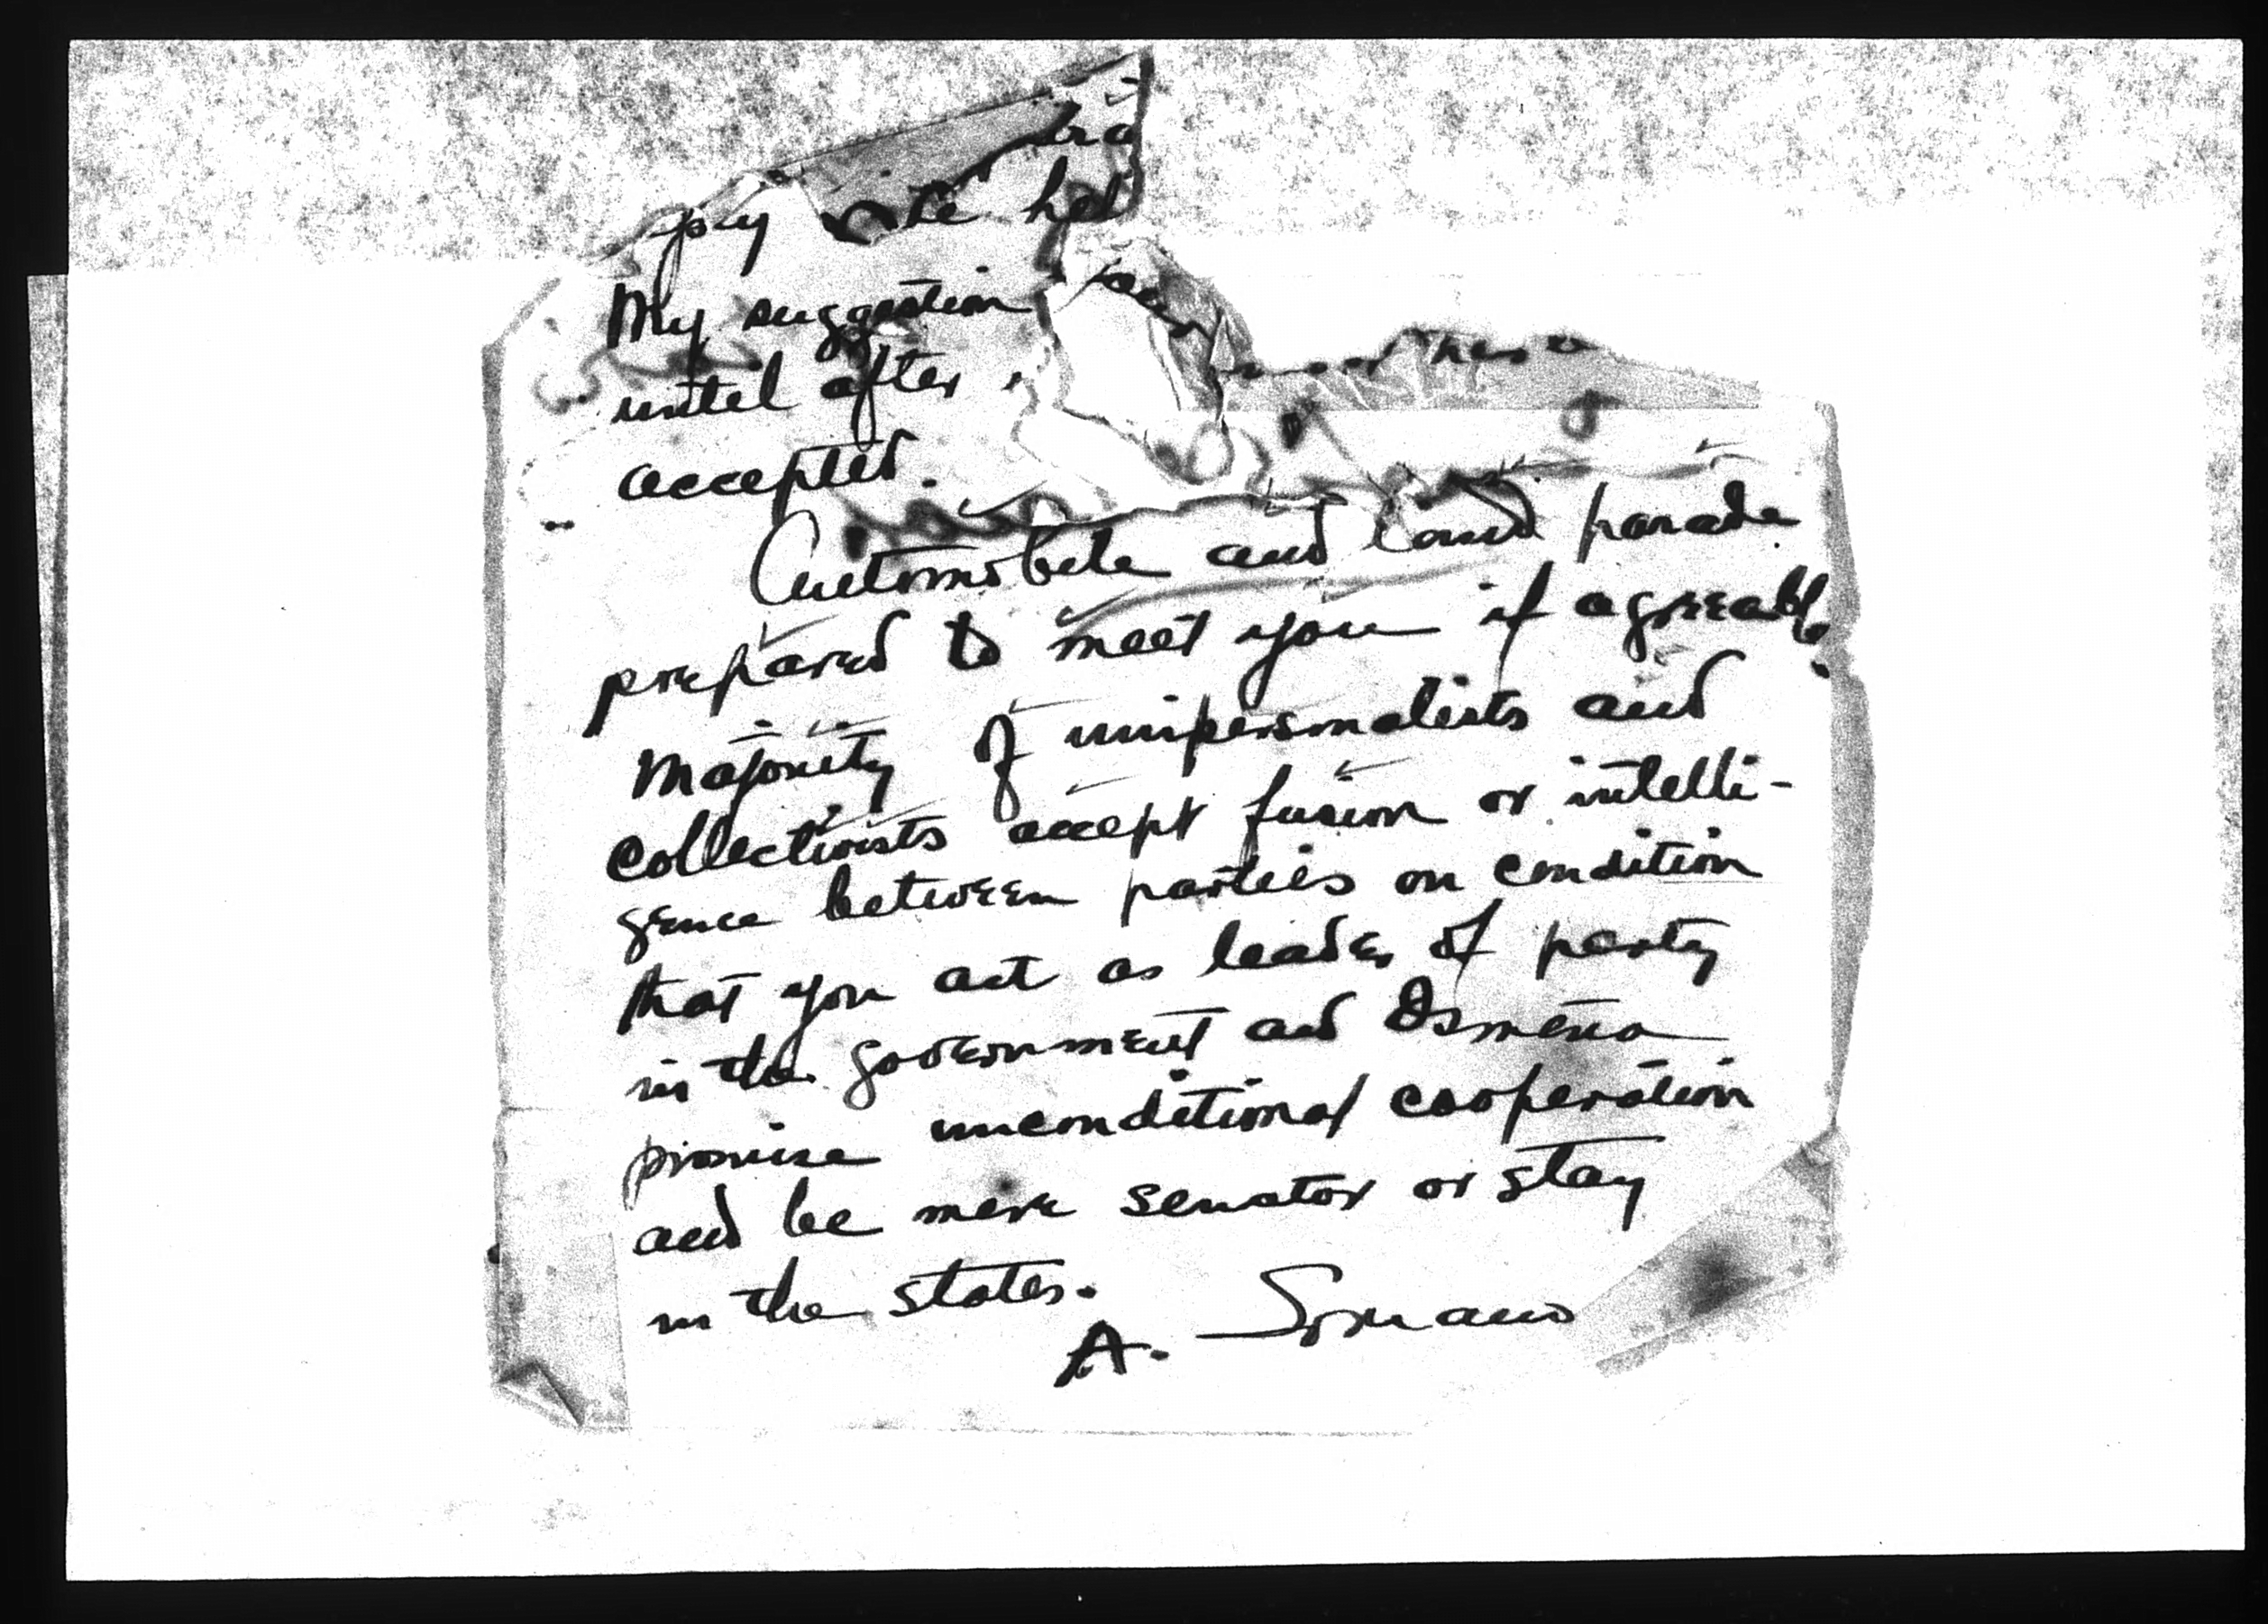 pay
My suggestion your
until after
accepted.
Automobile and land parade
prepared to meet you if agreeable
Majority of unipersonalists and
Collectivists accept fusion or intelli-
gence between parties on condition
that you act as leader of party
in the government and Osmeña
promise unconditional cooperation
and be mere senator or stay
in the states.
A. Soriano